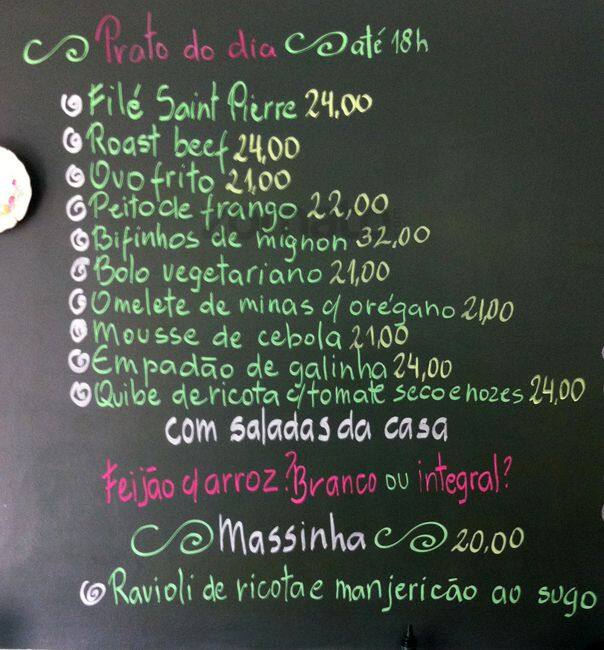 Prato do dia até 18h
Filé Saint Pierre 24,00
Roast beef 24,00
Ovo frito 21,00
Peito de frango 22,00
Bifinhos de mignon 32,00
Bolo vegetariano 21,00
Omelete de minas c/ orégano 21,00
Mousse de cebola 21,00
Empadão de galinha 24,00
Quibe de ricota c/ tomate seco e nozes 24,00
com saladas da casa
Feijão c/ arroz? Branco ou integral?
Massinha 20,00
Ravioli de ricota e manjericão ao sugo